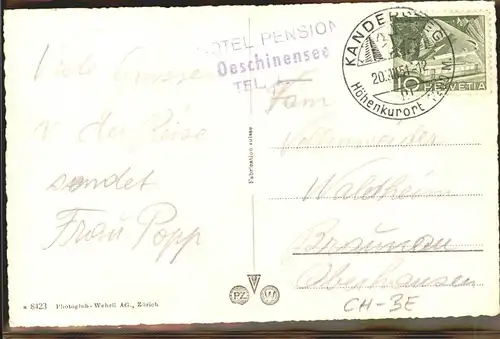 HOTEL PENSION
Oeschinensee
TEL.
KANDERSTEG
20.
Höhenkurort
10
HELVETIA
Viele Grüsse
v der Reise
sendet
Frau Popp
Fabrication suisse
Fam
Vollenweider
Waldheim
Braunau
Oberhausen
CH-BE
8423 Photoglob-Wehrli AG., Zürich
PZ
W